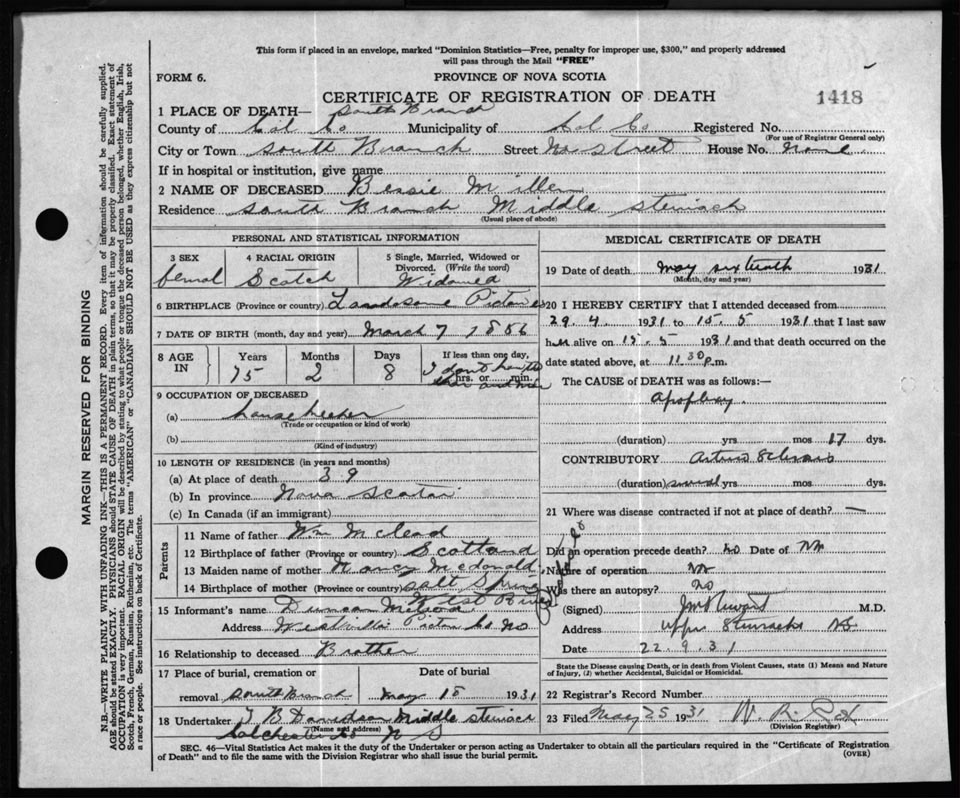 This form if placed in an envelope, marked "Dominion Statistics—Free, penalty for improper use, $300," and properly addressed
will pass through the Mail "FREE"
FORM 6.
PROVINCE OF NOVA SCOTIA
CERTIFICATE OF REGISTRATION OF DEATH
1418
1 PLACE OF DEATH— South Branch
County of Col Co Municipality of Col Co Registered No.
(For use of Registrar General only)
City or Town South Branch Street No Street House No. None
If in hospital or institution, give name
2 NAME OF DECEASED Bessie Miller
Residence South Branch Middle Stewiack
(Usual place of abode)
PERSONAL AND STATISTICAL INFORMATION
3 SEX femal
4 RACIAL ORIGIN Scotch
5 Single, Married, Widowed or Divorced. (Write the word) Widowed
6 BIRTHPLACE (Province or country) Pictou
7 DATE OF BIRTH (month, day and year) March 7 1856
8 AGE IN Years 75 Months 2 Days 8 If less than one day, hrs. or min.
9 OCCUPATION OF DECEASED
(a) housekeeker
(Trade or occupation or kind of work)
(b)
(Kind of industry)
10 LENGTH OF RESIDENCE (in years and months)
(a) At place of death 39
(b) In province Nova Scotai
(c) In Canada (if an immigrant)
Parents
11 Name of father Wm McLead
12 Birthplace of father (Province or country) Scotland
13 Maiden name of mother Nancy Mcdonald
14 Birthplace of mother (Province or country) Salt Spring
West River
15 Informant's name Duncan
Address Westville Pictou Co NS
16 Relationship to deceased Brother
17 Place of burial, cremation or removal South Branch Date of burial May 18 1931
18 Undertaker T B Davidson Middle Stewiac
(Name and address)
Colchester Co N S
MEDICAL CERTIFICATE OF DEATH
19 Date of death May sixteenth 1931
(Month, day and year)
20 I HEREBY CERTIFY that I attended deceased from
29.4. 1931 to 15.5 1931 that I last saw
her alive on 15.5 1931 and that death occurred on the
date stated above, at 11.30 p.m.
The CAUSE of DEATH was as follows:—
Apoplexy.
(duration) yrs mos 17 dys.
CONTRIBUTORY Arterio Sclerosis
(duration) several yrs mos dys.
21 Where was disease contracted if not at place of death? —
Did an operation precede death? No Date of
Nature of operation
Was there an autopsy? No
(Signed) M.D.
Address Upper Stewiacke NS
22.9.31
State the Disease causing Death, or in death from Violent Causes, state (1) Means and Nature
of Injury, (2) whether Accidental, Suicidal or Homicidal.
22 Registrar's Record Number
23 Filed May 25 1931
(Division Registrar)
SEC. 46—Vital Statistics Act makes it the duty of the Undertaker or person acting as Undertaker to obtain all the particulars required in the "Certificate of Registration
of Death" and to file the same with the Division Registrar who shall issue the burial permit.
(OVER)
MARGIN RESERVED FOR BINDING
N.B.—WRITE PLAINLY WITH UNFADING INK—THIS IS A PERMANENT RECORD. Every item of information should be carefully supplied.
AGE should be stated EXACTLY. PHYSICIANS should STATE CAUSE OF DEATH in plain terms, so that it may be properly classified. Exact statement of
OCCUPATION is very important. RACIAL ORIGIN will be described by stating to what people or tongue the deceased person belonged, whether English, Irish,
Scotch, French, German, Russian, Ruthenian, etc. The terms "AMERICAN" or "CANADIAN" SHOULD NOT BE USED as they express citizenship but not
a race or people. See instructions on back of Certificate.